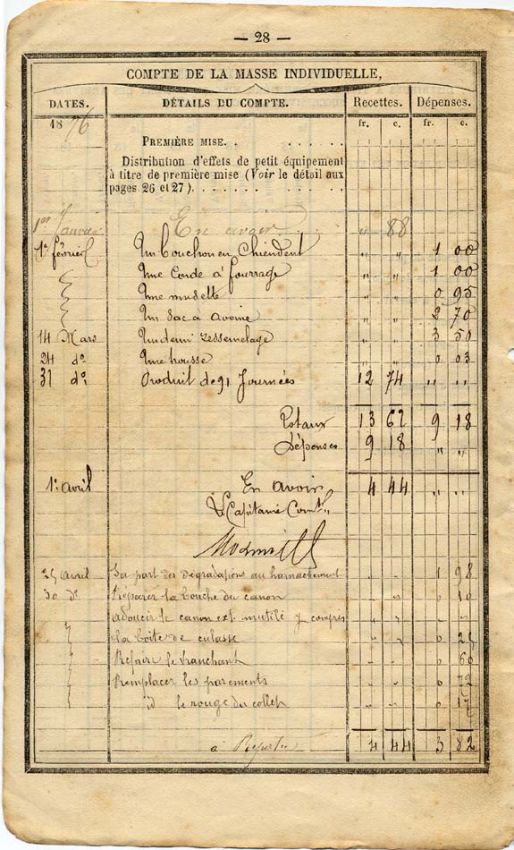 — 28 —
COMPTE DE LA MASSE INDIVIDUELLE,
DATES. DÉTAILS DU COMPTE. Recettes. Dépenses.
fr. c. fr. c.
1876
PREMIÈRE MISE. .
Distribution d'effets de petit équipement
à titre de première mise (Voir le détail aux
pages 26 et 27). . . . . . .
1er Janvier En avoir " 88
1er février Un bouchon en Chiendent " " 1 00
Une Corde à fourrage " " 1 00
Une musette " " 0 95
Un sac a avoine " " 2 70
14 Mars Un demi ressemelage " " 3 50
24 do Une housse " " 0 03
31 do Produit de 91 Journées 12 74 " "
Totaux 13 62 9 18
Dépenses 9 18 " "
1er avril En avoir 4 44 " "
Le Capitaine Comt
25 avril Sa part des dégradations au harnachement " " 1 98
30 do Réparer la bouche du canon " " 0 10
adoucir le canon est mutilé y compris
la boite de culasse " " 0 25
Refaire le tranchant " " 0 60
Remplacer les parements " " 0 72
id le rouge du collet " " 0 17
à Reporter 4 44 3 82